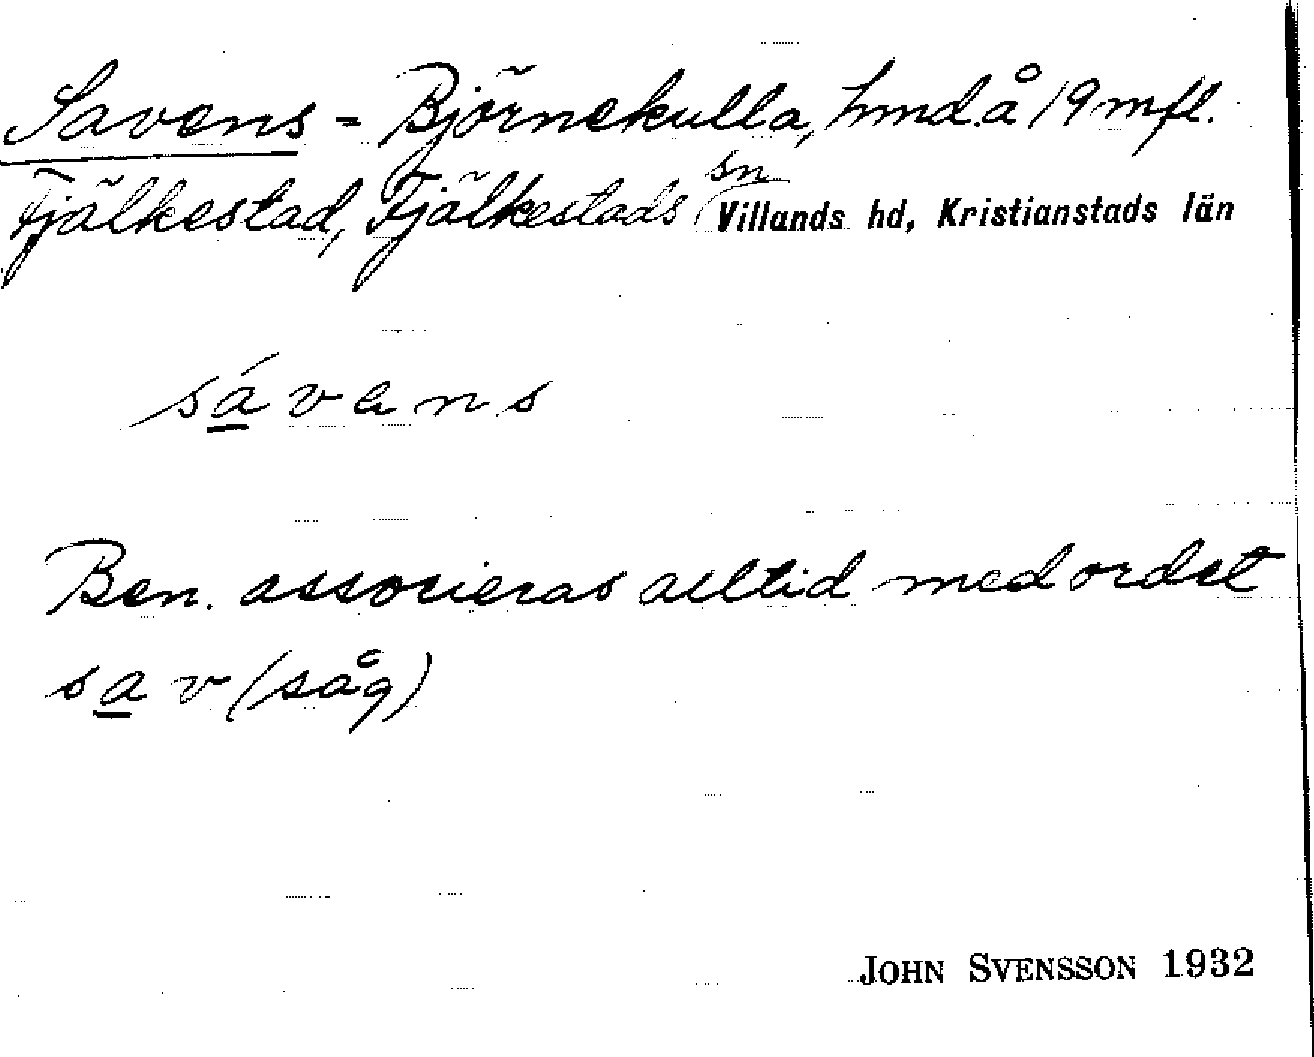 Savens = Björnekulla, hmd. å 19 mfl.
Fjälkestad, Fjälkestads sn Villands hd, Kristianstads län
sávens
Ben. associeras alltid med ordet
sav (såg)
JOHN SVENSSON 1932